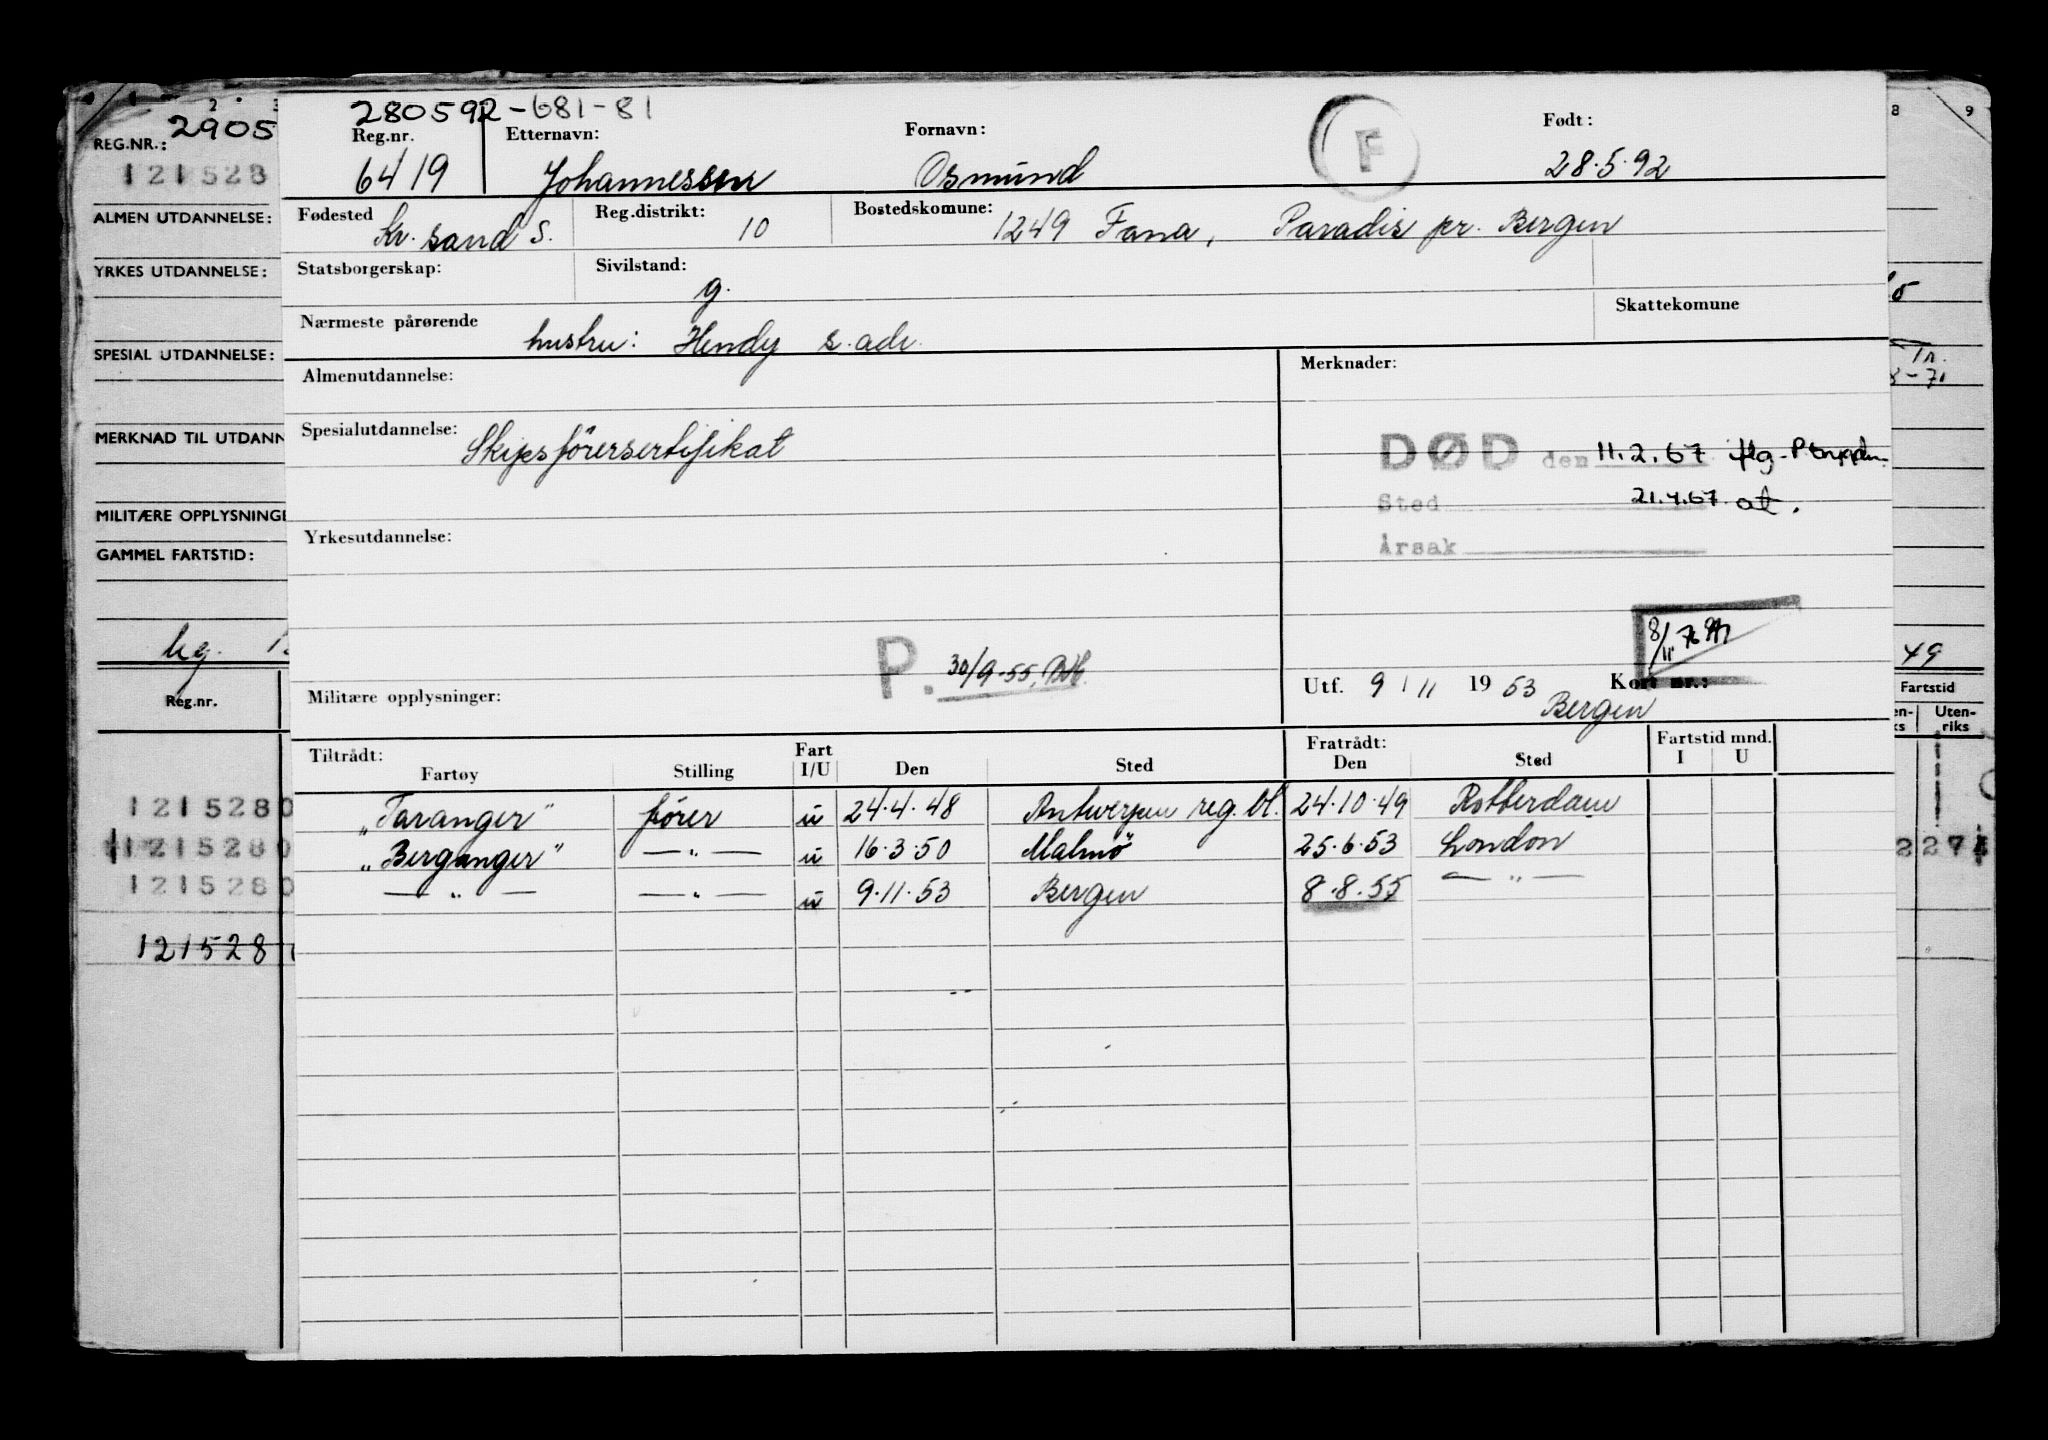 280592-681-81
Reg.nr. Etternavn: Fornavn: F Født:
6419 Johannessen Osmund 28.5.92
Fødested Kr.sand S. Reg.distrikt: 10 Bostedskomune: 1249 Fana, Paradis pr. Bergen
Statsborgerskap: Sivilstand: g.
Nærmeste pårørende hustru: Hendy s. adr. Skattekomune
Almenutdannelse: Merknader:
Spesialutdannelse: Skipsførersertifikat
DØD den 11.2.67 iflg.
Sted 21.4.67 at.
Årsak
Yrkesutdannelse:
P. 30/9-55.
8/11
Militære opplysninger: Utf. 9/11 1953 Kort nr.:
Bergen
Tiltrådt: Fratrådt: Fartstid mnd.
Fartøy Stilling Fart I/U Den Sted Den Sted I U
"Taranger" fører u 24.4.48 Antwerpen reg. bl. 24.10.49 Rotterdam
"Berganger" —"— u 16.3.50 Malmö 25.6.53 London
—"— —"— u 9.11.53 Bergen 8.8.55 —"—
2
2905
REG.NR.:
121528
ALMEN UTDANNELSE:
YRKES UTDANNELSE:
SPESIAL UTDANNELSE:
MERKNAD TIL UTDANN
MILITÆRE OPPLYSNINGE
GAMMEL FARTSTID:
Reg.nr.
1215280
1215280
1215280
121528
8 9
49
Fartstid
Uten-
riks
227